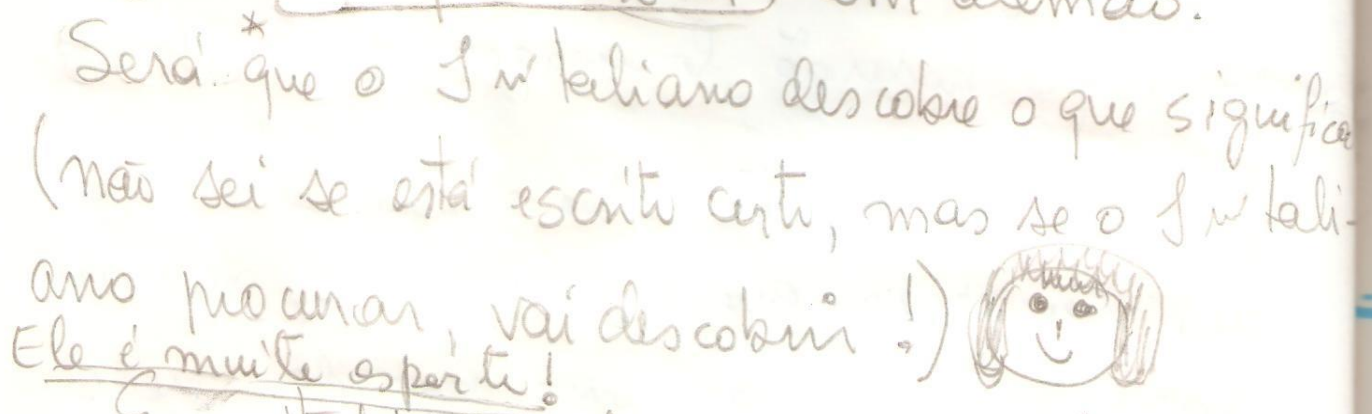 em alemão.
Será *que o Sr Italiano descobre o que significa
(não sei se está escrito certo, mas se o Sr Itali-
ano procurar, vai descobrir!)
Ele é muito esperto!